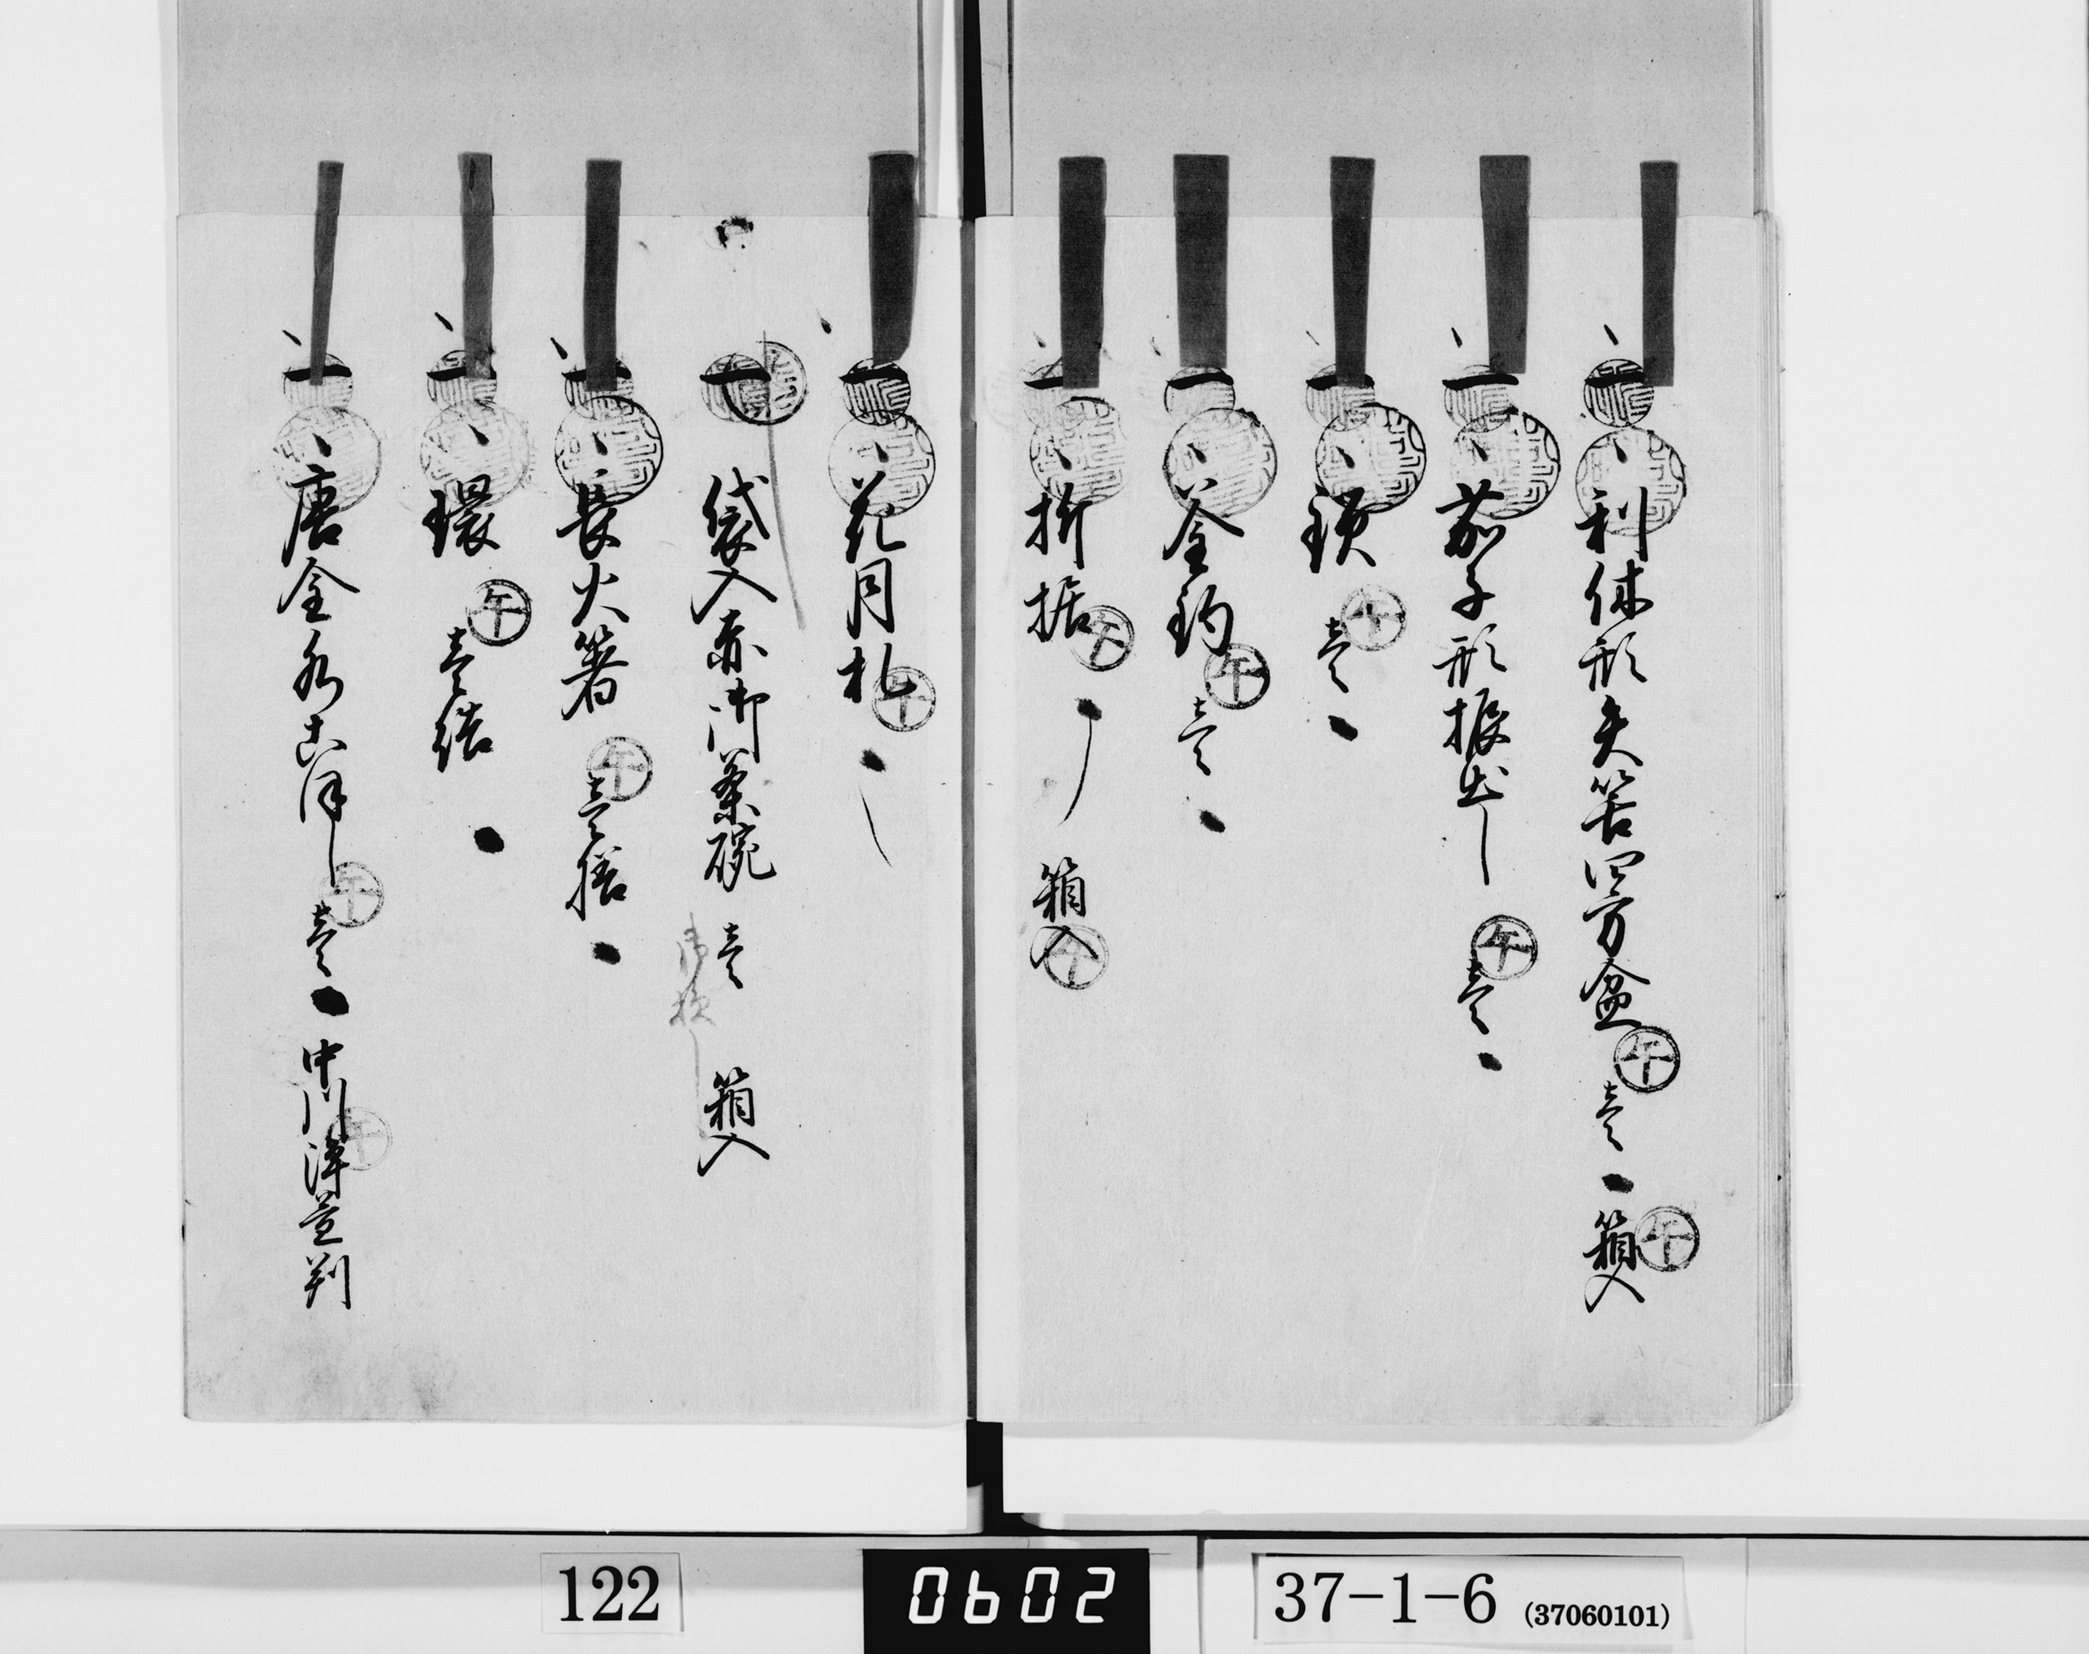 一利休形矢筈四方盆 午 壱 箱入 午
一茄子形振出し 午 壱
一鎖 午 壱
一釜釣 午 壱
一折据 午 箱入 午
一花月札 午
一袋入赤御茶碗 壱 箱入
一長火箸 午 壱揃
一環 午 壱結
一唐金水こほし 午 壱 中川浄益判 午
122
0602
37-1-6 (37060101)